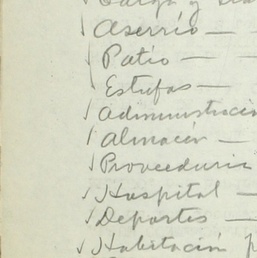 √ Aserrío —
√ Patio —
√ Estufas —
√ Administració
√ Almacén —
√ Proveeduri
√ Hospital —
√ Deportes —
√ Habitación p